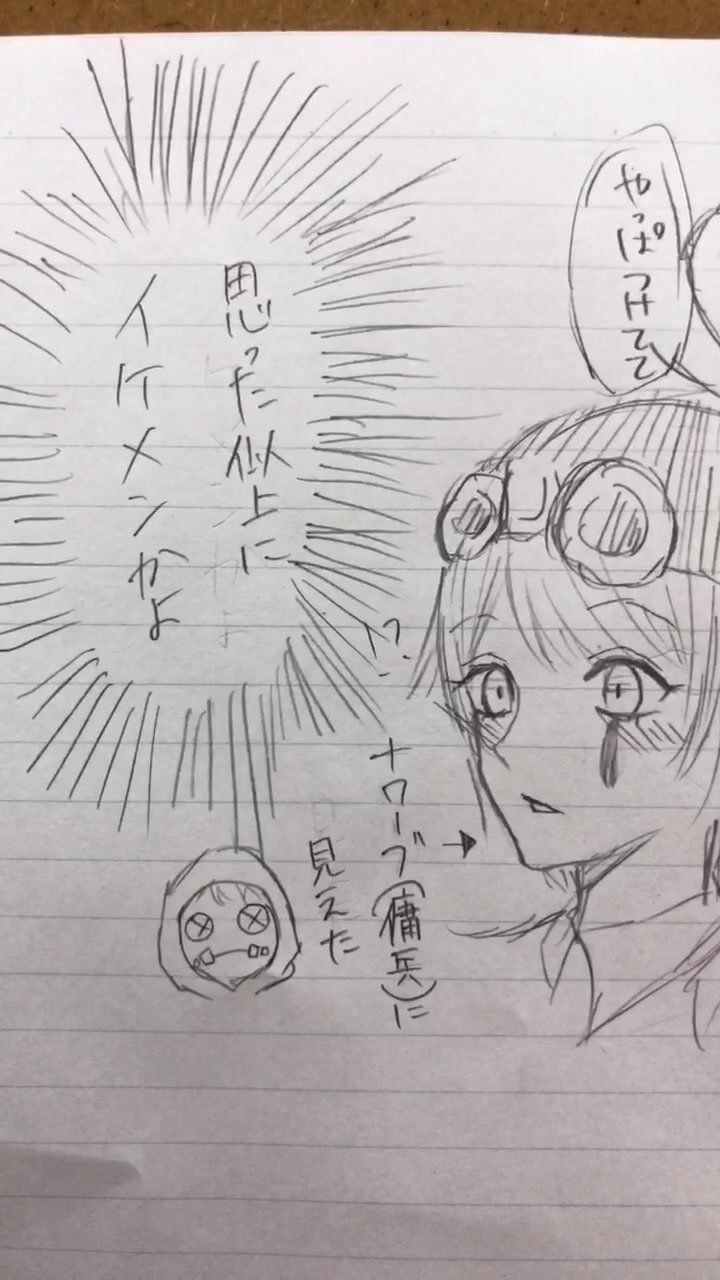 やっぱつけてて
!?
思った似上に
イケメンかよ
ナワーブ(傭兵)に
見えた